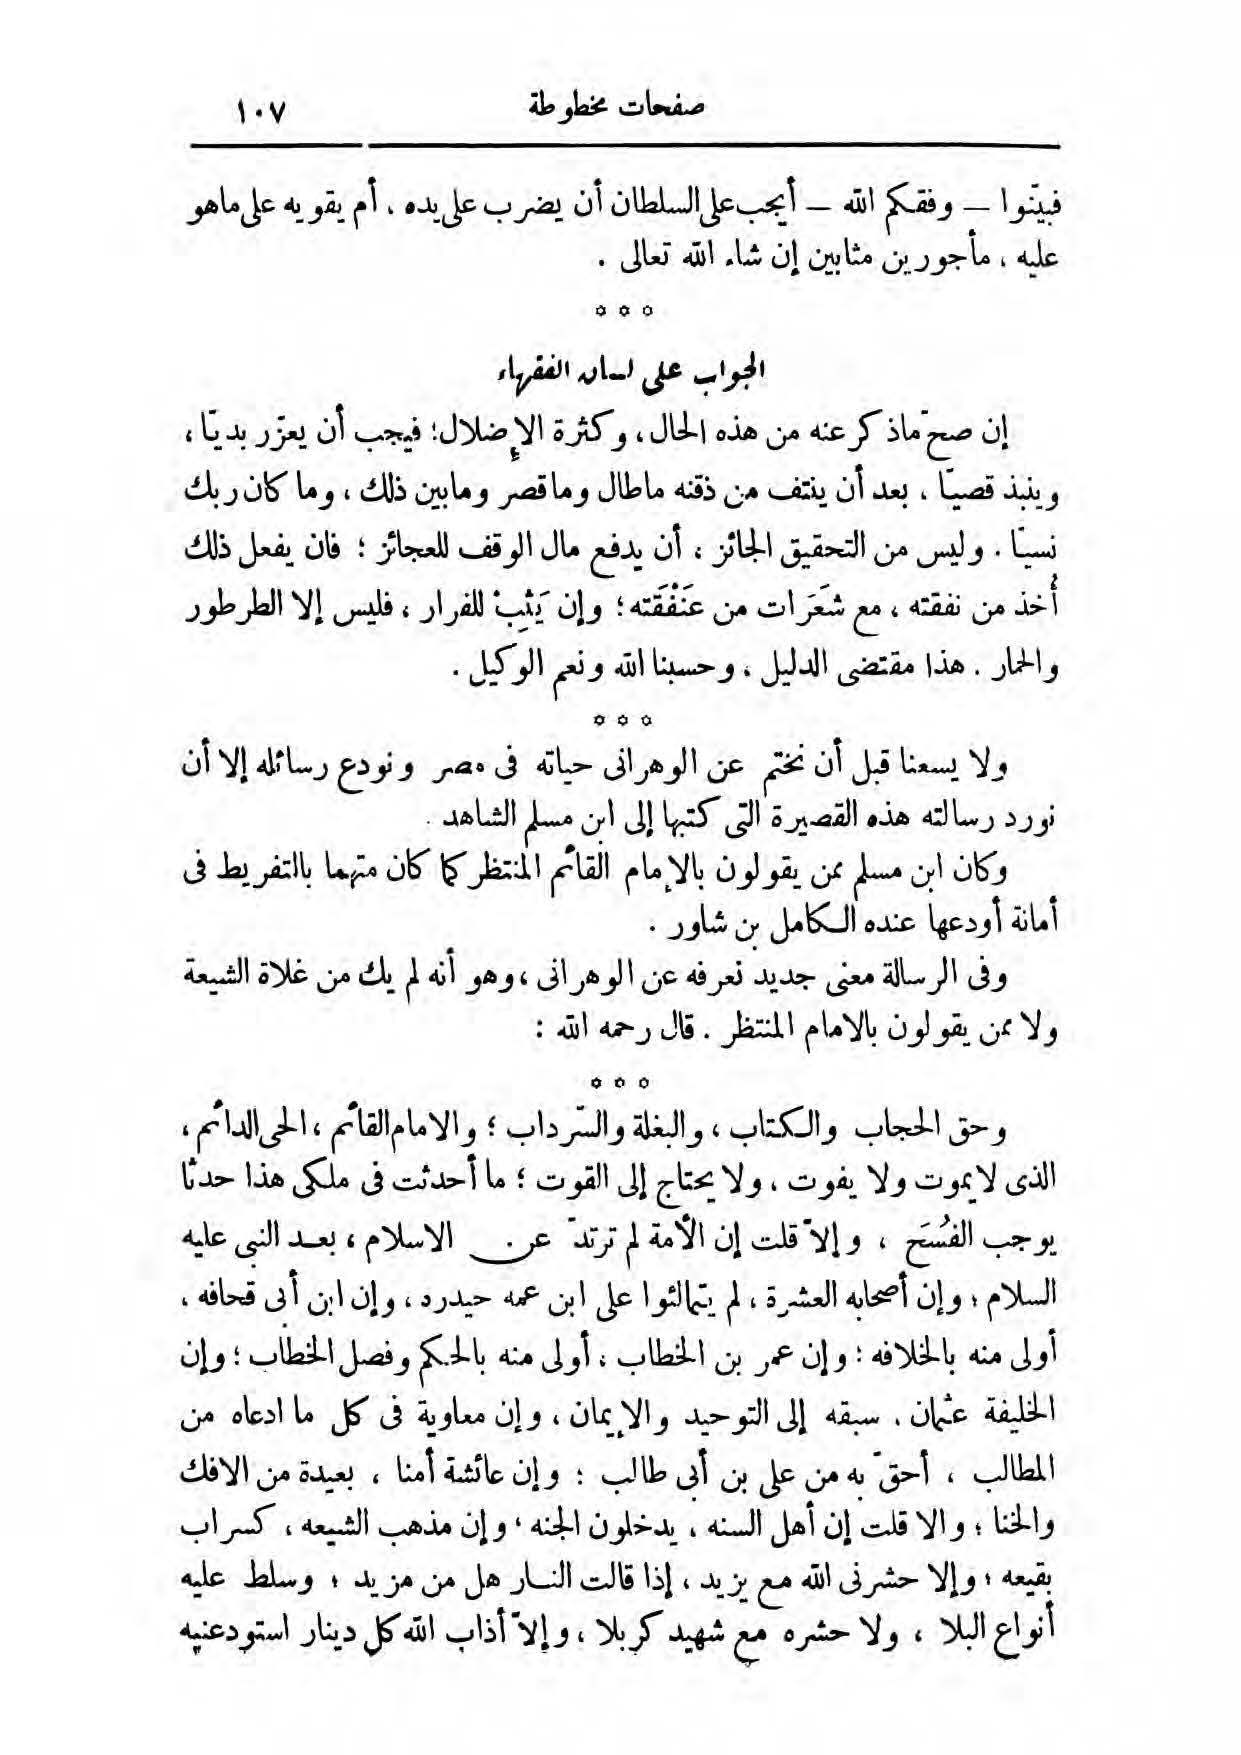 صفحات مخطوطة ١٠٧
فبيّنوا — وفقكم الله — أيجب على السلطان أن يضرب على يده ، أم يقويه على ماهو
عليه ، مأجورين مثابين إن شاء الله تعالى .
* * *
الجواب على لسان الفقهاء
إن صحّ ماذكر عنه من هذه الحال ، وكثرة الإضلال ؛ فيجب أن يعزّر بديّا ،
وينبذ قصيّا ، بعد أن ينتف من ذقنه ماطال وماقصر ومابين ذلك ، وما كان ربك
نسيّا . وليس من التحقيق الجائز ، أن يدفع مال الوقف للعجائز ؛ فان يفعل ذلك
أُخذ من نفقته ، مع شَعَرَات من عَنْفَقَته ؛ وإن يَثِبْ للفرار ، فليس إلا الطرطور
والحمار . هذا مقتضى الدليل ، وحسبنا الله ونعم الوكيل .
* * *
ولا يسعنا قبل أن نختم عن الوهرانى حياته فى مصر ونودع رسائله إلا أن
نورد رسالته هذه القصيرة التى كتبها إلى ابن مسلم الشاهد .
وكان ابن مسلم ممن يقولون بالإمام القائم المنتظر كما كان متهما بالتفريط فى
أمانة أودعها عنده الكامل بن شاور .
وفى الرسالة معنى جديد نعرفه عن الوهرانى ، وهو أنه لم يك من غلاة الشيعة
ولا ممن يقولون بالامام المنتظر . قال رحمه الله :
* * *
وحق الحجاب والكتاب ، والبغلة والسّرداب ؛ والامام القائم ، الحى الدائم ،
الذى لا يموت ولا يفوت ، ولا يحتاج إلى القوت ؛ ما أحدثت فى ملكى هذا حدثا
يوجب الفُسَحَ ، وإلاّ قلت إن الأمة لم ترتدّ عن الاسلام ، بعد النبى عليه
السلام ؛ وإن أصحابه العشرة ، لم يتمالئوا على ابن عمه حيدره ، وإن ابن أبى قحافه ،
أولى منه بالخلافه ؛ وإن عمر بن الخطاب ، أولى منه بالحكم وفصل الخطاب ؛ وإن
الخليفة عثمان ، سبقه إلى التوحيد والإيمان ، وإن معاوية فى كل ما ادعاه من
المطالب ، أحقّ به من على بن أبى طالب ؛ وإن عائشة أمنا ، بعيدة من الافك
والخنا ؛ والا قلت إن أهل السنه ، يدخلون الجنه ، وإن مذهب الشيعه ، كسراب
بقيعه ؛ وإلا حشرنى الله مع يزيد ، إذا قالت النار هل من مزيد ؛ وسلط عليه
أنواع البلا ، ولا حشره مع شهيد كربلا ، وإلاّ أذاب الله كل دينار استودعنيه